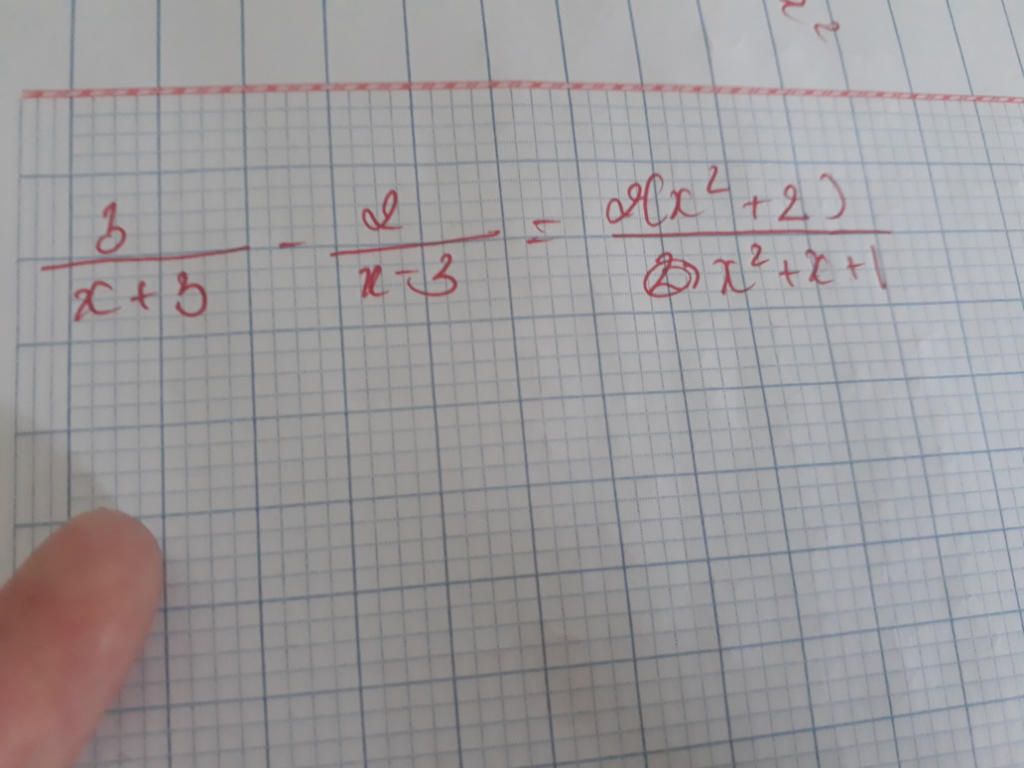 3/(x+3) - 2/(x-3) = 2(x²+2)/(x²+x+1)